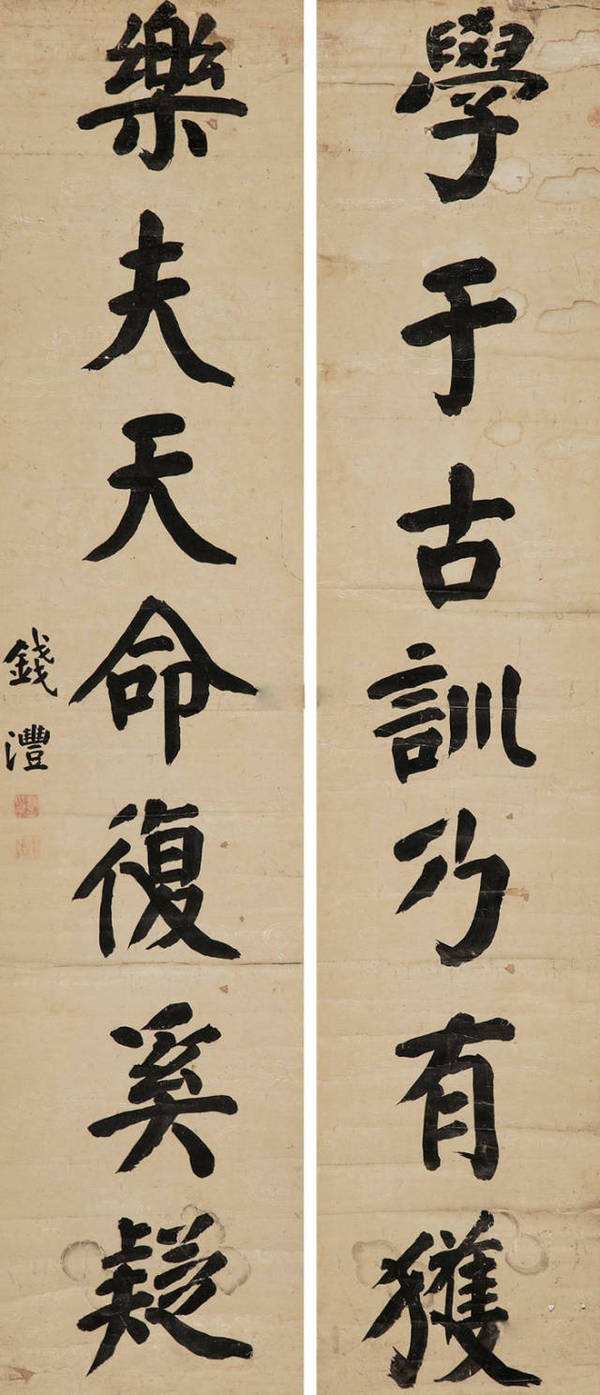 學于古訓乃有獲
樂夫天命復奚疑
錢灃